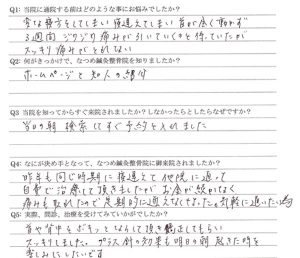 Q1: 当院に通院する前はどのような事にお悩みでしたか?
変な寝方をしてしまい寝違えてしまい首が全く動かず
3週間 ジワジワ痛みが引いていくのを待っていたが
スッキリ痛みがとれない
Q2: 何がきっかけで、なつめ鍼灸整骨院を知りましたか?
ホームページと知人の紹介
Q3 当院を知ってからすぐ来院されましたか?しなかったとしたらなぜですか?
当日の朝 検索してすぐ予約を入れました
Q4: なにが決め手となって、なつめ鍼灸整骨院に御来院されましたか?
昨年も同じ時期に寝違えて他院に通って
自費で治療して頂きましたが お金が続かなく
痛みも取れたので定期的に通えなくなった。気軽に通いたい為
Q5: 実際、問診、治療を受けてみていかがでしたか?
首や背中をボキッとならして頂き矯正してもらい
スッキリしました。プラス針の効果も明日の朝 起きた時を
楽しみにしたいです